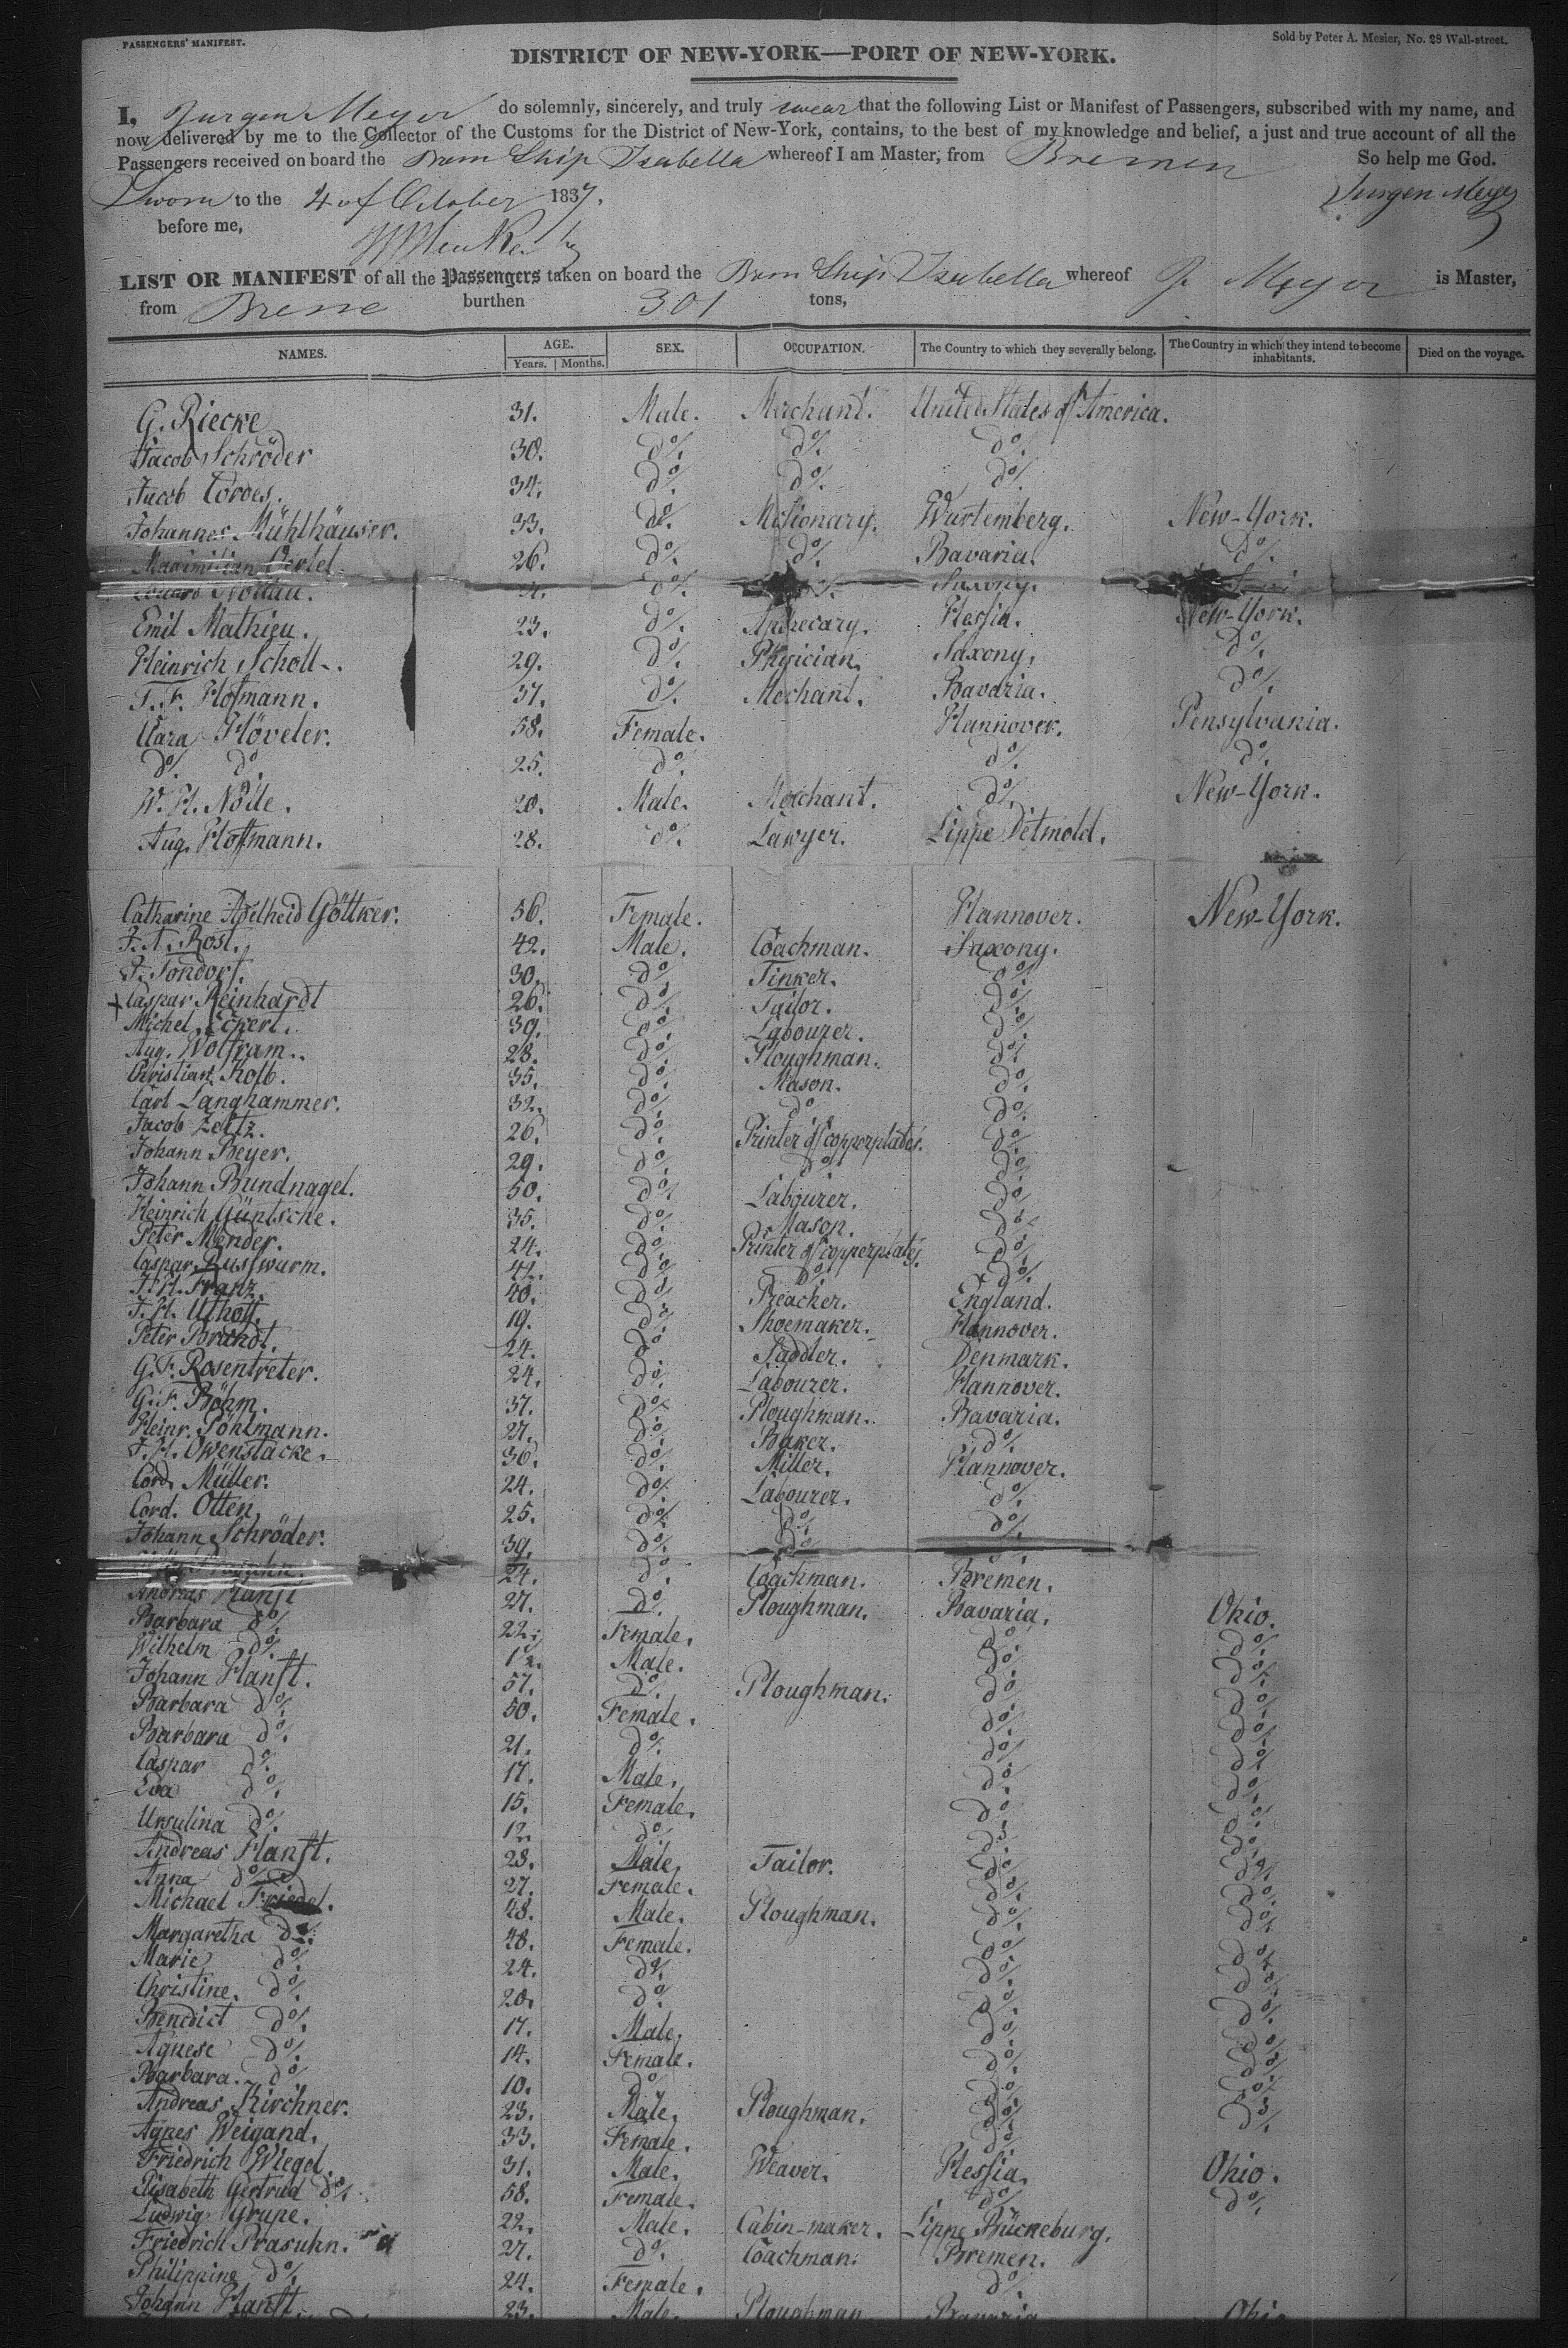 PASSENGERS' MANIFEST.
Sold by Peter A. Mesier, No. 28 Wall-street.
DISTRICT OF NEW-YORK—PORT OF NEW-YORK.
I, Jurgen Meyer do solemnly, sincerely, and truly swear that the following List or Manifest of Passengers, subscribed with my name, and
now delivered by me to the Collector of the Customs for the District of New-York, contains, to the best of my knowledge and belief, a just and true account of all the
Passengers received on board the Brem Ship Isabella whereof I am Master, from Bremen So help me God.
Sworn to the 4 of October 1837. Jurgen Meyer
before me,
LIST OR MANIFEST of all the Passengers taken on board the Brem Ship Isabella whereof J. Meyer is Master,
from Breme burthen 301 tons,
NAMES. AGE. Years. Months. SEX. OCCUPATION. The Country to which they severally belong. The Country in which they intend to become inhabitants. Died on the voyage.
G. Riecke 31. Male. Merchant. United States of America.
Jacob Schröder 30. do. do. do.
Jacob Cordes. 34. do. do. do.
Johannes Mühlhäuser. 33. do. Missionary. Wurtemberg. New-York.
Maximilian Oertel. 26. do. do. Bavaria. do.
do. Saxony.
Emil Mathieu. 23. do. Apothecary. Hessia. New-York.
Heinrich Scholl. 29. do. Physician. Saxony. do.
T. F. Hofmann. 37. do. Merchant. Bavaria. do.
Clara Höveler. 58. Female. Hannover. Pensylvania.
do. do. 25. do. do. do.
W. H. Nolle. 20. Male. Merchant. do. New-York.
Aug. Hoffmann. 28. do. Lawyer. Lippe Detmold.
Catharine Adelheid Göttker. 56. Female. Hannover. New-York.
F. A. Rost. 42. Male. Coachman. Saxony.
F. Sondorf. 30. do. Tinker. do.
Caspar Reinhardt 26. do. Tailor. do.
Michel Eckert. 39. do. Labourer. do.
Aug. Wolfram. 28. do. Ploughman. do.
Christian Kolb. 35. do. Mason. do.
Carl Langhammer. 32. do. do. do.
Jacob Zeltz. 26. do. Printer of copperplates. do.
Johann Beyer. 29. do. do. do.
Johann Bundnagel. 50. do. Labourer. do.
Heinrich Güntsche. 35. do. Mason. do.
Peter Mender. 24. do. Printer of copperplates. do.
Caspar Russwurm. do. do. do.
J. H. Franz. 40. do. Preacher. England.
J. H. Uthoff. 19. do. Shoemaker. Hannover.
Peter Brandt. 24. do Saddler. Denmark.
G. F. Rosentreter. 24. do. Labourer. Hannover.
G. F. Böhm. 37. do. Ploughman. Bavaria.
Heinr. Pöhlmann. 27. do. Baker. do.
F. H. Owenstacke. 36. do. Miller. Hannover.
Cord. Müller. 24. do. Labourer. do.
Cord. Otten. 25. do. do. do.
Johann Schröder. 39. do. do.
24. do. Coachman. Bremen.
Andreas Hanft 27. do. Ploughman. Bavaria. Ohio.
Barbara do. 22. Female. do. do.
Wilhelm do. Male. do. do.
Johann Hanft. 57. do. Ploughman. do. do.
Barbara do. 50. Female. do. do.
Barbara do. 21. do. do. do.
Caspar do. 17. Male. do. do.
Eva do. 15. Female. do. do.
Ursulina do. 12. do. do. do.
Andreas Hanft. 28. Male. Tailor. do. do.
Anna do. 27. Female. do. do.
Michael Friedel. 48. Male. Ploughman. do. do.
Margaretha do. 48. Female. do. do.
Marie do. 24. do. do. do.
Christine. do. 20. do. do. do.
Benedict do. 17. Male. do. do.
Agnese do. 14. Female. do. do.
Barbara. do. 10. do. do. do.
Andreas Kirchner. 23. Male. Ploughman. do. do.
Agnes Weigand. 33. Female. do.
Friedrich Wiegel. 31. Male. Weaver. Hessia. Ohio.
Elisabeth Gertrud do. 58. Female. do. do.
Ludwig Grupe. 22. Male. Cabin-maker. Lippe Bückeburg.
Friedrich Prasuhn. 27. do. Coachman. Bremen.
Philippine do. 24. Female. do.
Johann Hanft 23. Male. Ploughman. Bavaria Ohio